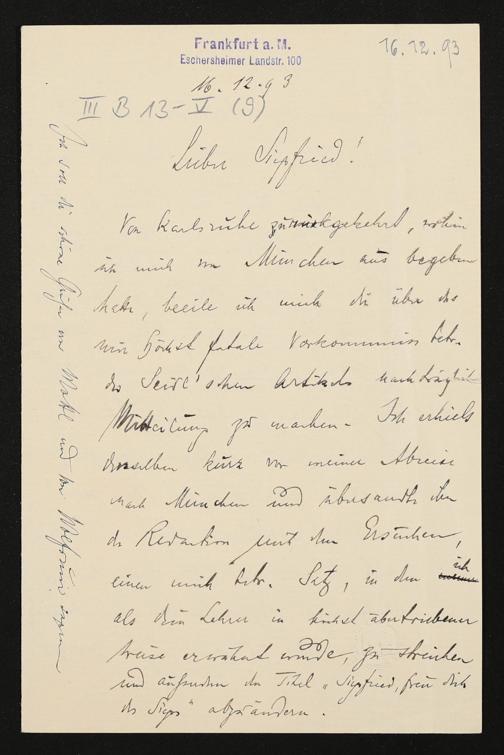 Frankfurt a. M.
Eschersheimer Landstr. 100
16.12.93
16.12.93
III B 13-V (9)
Lieber Siegfried!
Von Karlsruhe zurückgekehrt, wohin
ich mich von München aus begeben
hatte, beeile ich mich dir über das
mir höchst fatale Vorkommniss betr.
des Seidl'schen Artikels nachträglich
Mitteilung zu machen - Ich erhielt
denselben kurz vor meiner Abreise
nach München und übersandte ihn
der Redaction mit dem Ersuchen,
einen mich betr. Satz, in dem ich
als dein Lehrer in höchst übertriebener
Weise erwähnt wurde, zu streichen
und außerdem den Titel „Siegfried, freu dich
des Siegs" abzuändern.
Ich soll dir schöne Grüße von Mottl und von Wolzogen sagen